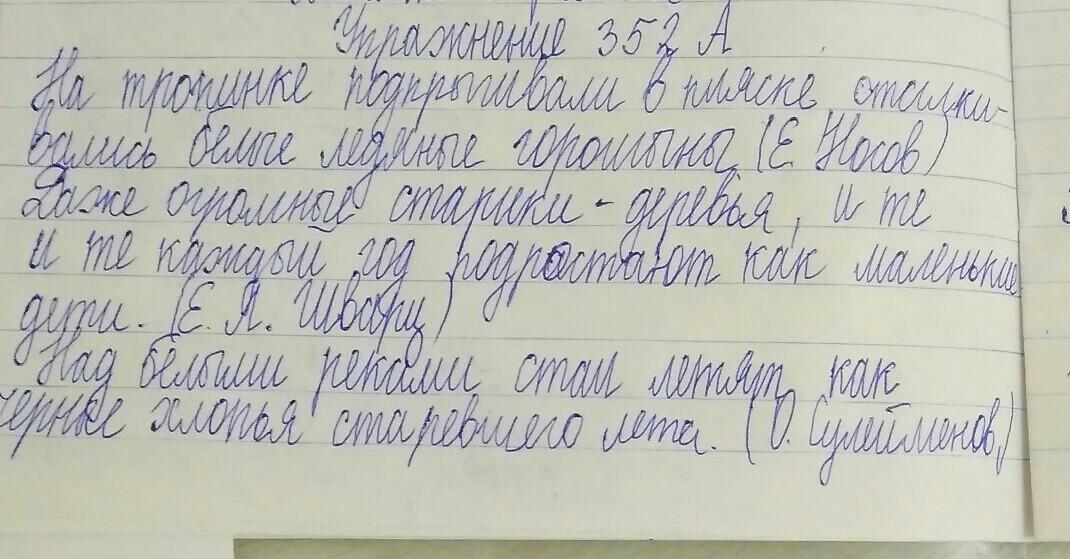 Упражнение 352 А
На тропинке подпрыгивали в пляске, отталки-
вались белые ледяные горошыны (Е. Носов)
Даже огромные старики - деревья, и те
и те каждый год подрастают как маленькие
дети. (Е. Л. Шварц)
Над белыми реками стаи летят, как
черные хлопья старевшего лета. (О. Сулейменов)